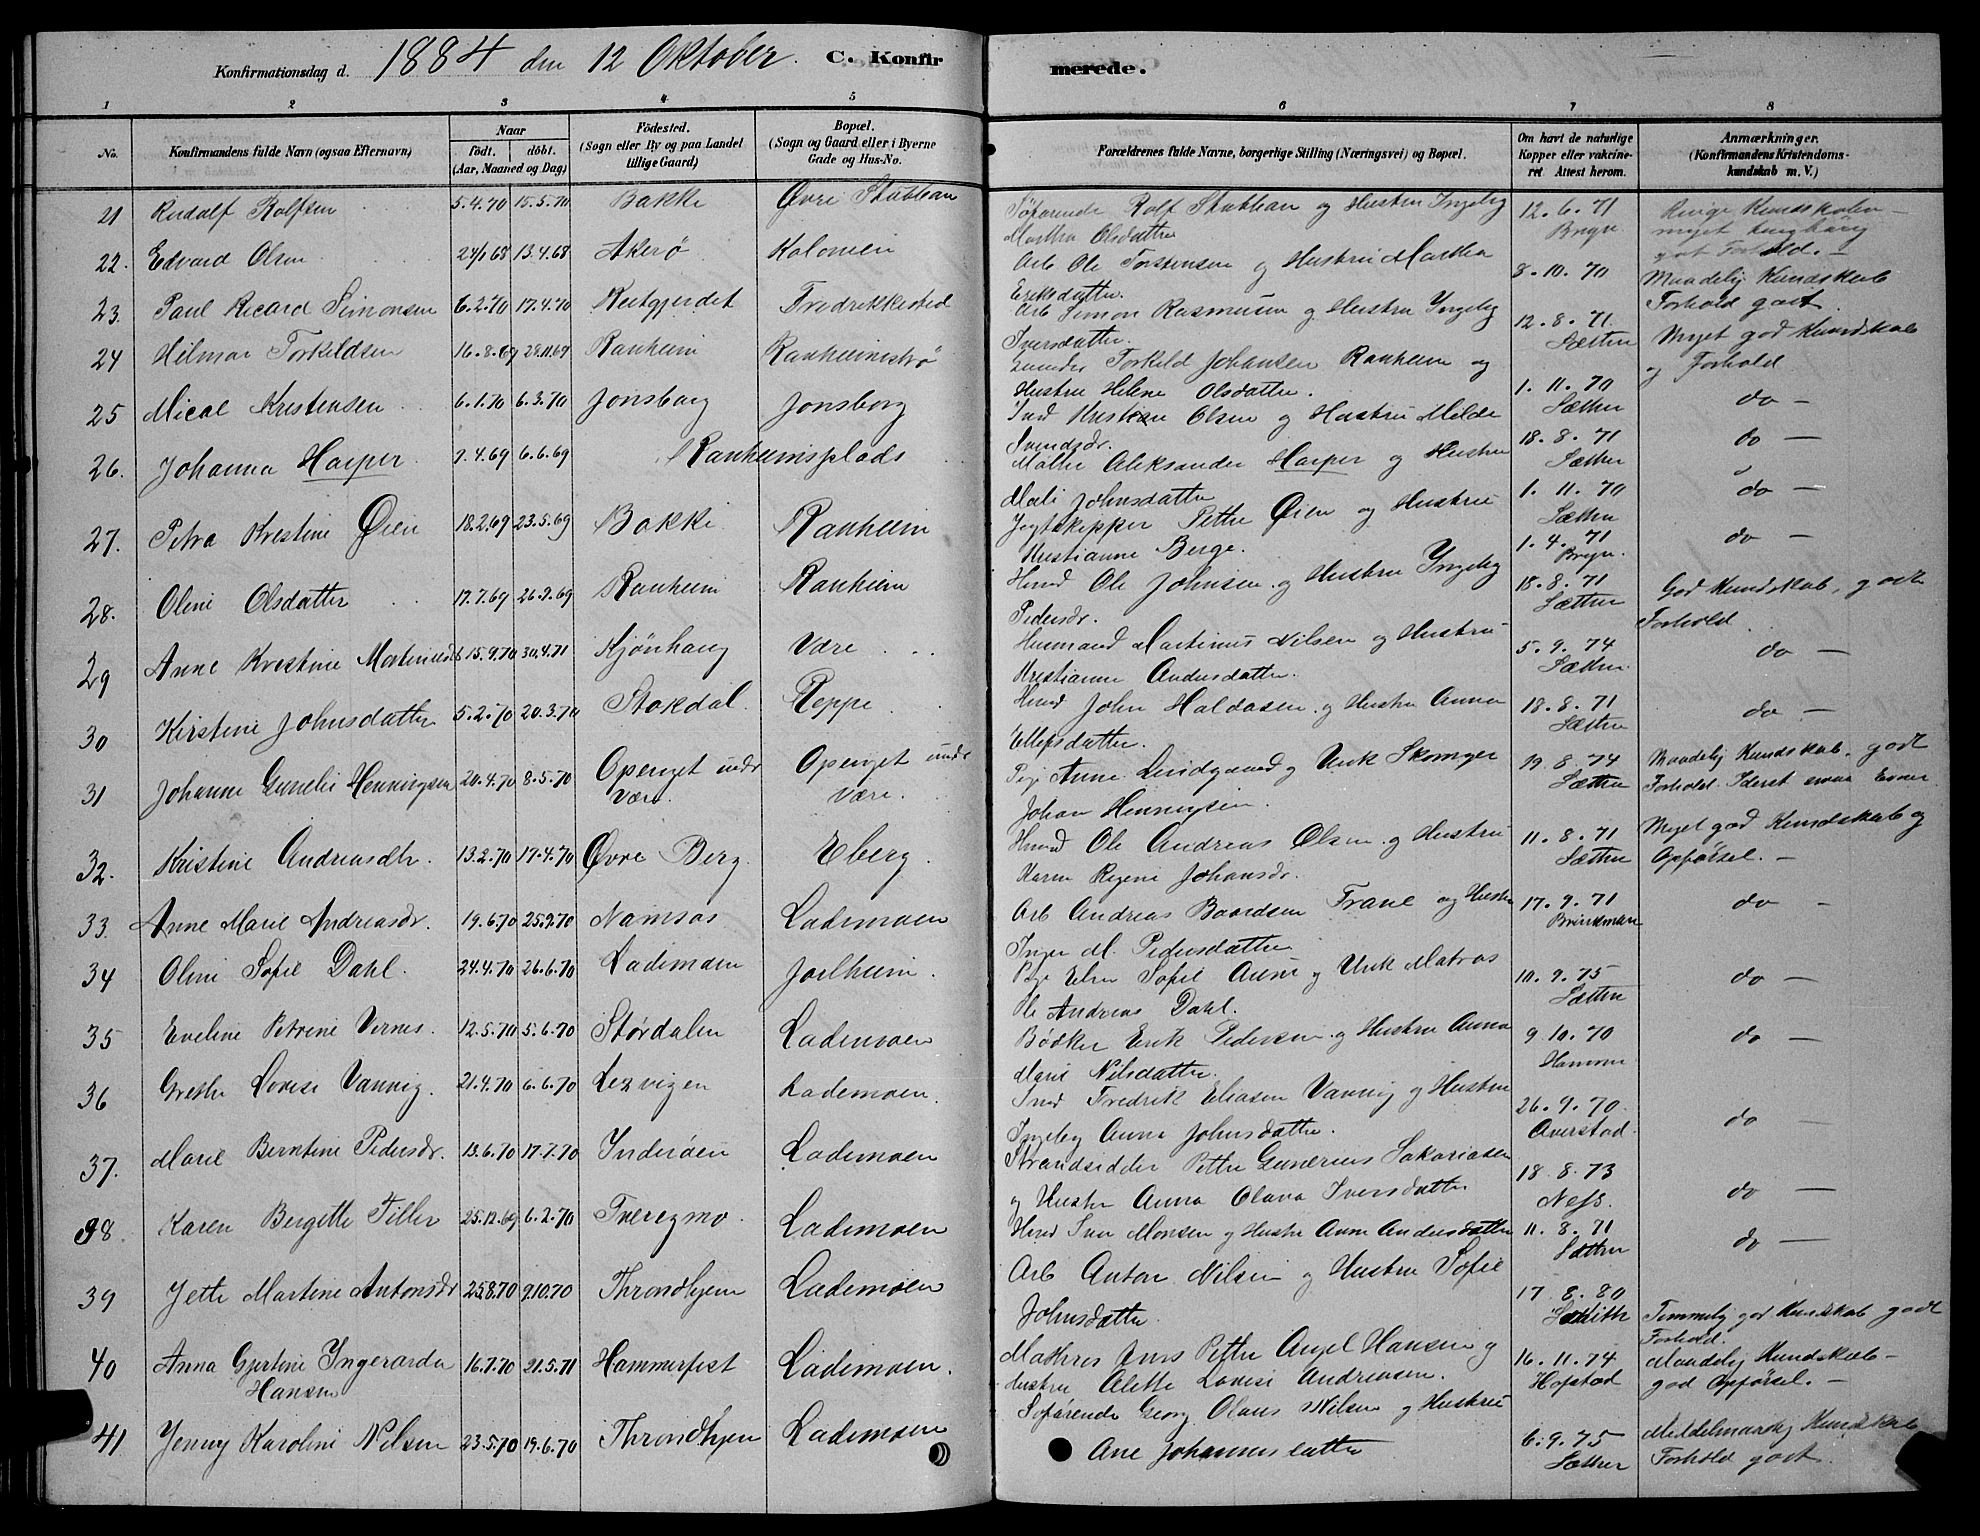 Konfirmationsdag d. 1884 den 12 Oktober. C. Konfirmerede.
1 2 3 4 5 6 7 8
No. Konfirmandens fulde Navn (ogsaa Efternavn) Naar født. døbt. (Aar, Maaned og Dag) Födested. (Sogn eller By og paa Landet tillige Gaard) Bopæl. (Sogn og Gaard eller i Byerne Gade og Hus-No. Forældrenes fulde Navne, borgerlige Stilling (Næringsvei) og Bopæl. Om havt de naturlige Kopper eller vakcineret. Attest herom. Anmærkninger. (Konfirmandens Kristendomskundskab m. V.)
21 Rudolf Rolfsen 5.4.70 15.5.70 Bakke Øvre Stubban Søfarende Rolf Stubban og Hustru Ingebg 12.6.71 Ringe Kundskaber
Martha Olsdatter Bryn. meget tunghørig
godt Forhold.
22. Edvard Olsen 24/1 68 13.4.68 Akerø Kolonien Arb Ole Torstensen og Hustru Martha 8.10.70 Maadelig Kundskab
Eriksdatter. Forhold godt
23. Paul Ricard Simonsen 6.2.70 17.4.70 Reitgjerdet Fredrikkested Arb Simon Rasmusen og Hustru Ingebg 12.8.71 Myet god Kundskab
Iversdatter. Sætther og Forhold
24 Hilmar Torkildsen 16.8.69 28.11.69 Ranheim Ranheimstrø Torkild Johansen Ranheim og 1.11.70 do -
Hustru Helene Olsdatter. Sæther
25 Mical Kristensen 6.1.70 6.3.70 Jonsborg Jonsborg Ind Kristian Olsen og Hustru Milde 18.8.71 do -
Svendsdr. Sæther
26. Johanna Harper 7.4.69 6.6.69 Ranheimsplads Møller Aleksander Harper og Hustru 1.11.70 do -
Mali Johnsdatter Sæther
27. Petra Kristine Øien 18.2.69 23.5.69 Bakke Ranheim Jegtskipper Petter Øien og Hustru 1.4.71 do -
Kristianne Berge. Bryn.
28. Oline Olsdatter 17.7.69 26.9.69 Ranheim Ranheim Husmd Ole Johnsen og Hustru Ingebg 18.8.71 God Kundskab, godt
Pedersdr. Sæther Forhold.
29 Anne Kristine Mortinusdr 15.9.70 30.4.71 Kjønhaug Være Husmand Martinus Nilsen og Hustru 5.9.74 do -
Kristianne Andersdatter. Sæther.
30 Kirstine Johnsdatter 5.2.70 20.3.70 Stokdal. Reppe Husmd John Haldosen og Hustru Anna 18.8.71 do -
Ellefsdatter. Sæther
31 Johanne Gurelie Henningsen 20.4.70 8.5.70 Openget undr Være. Openget undr Være. Pige Anne Lindgaard og Unk Skomger 19.8.74 Maadelig Kundskab, godt
Johan Henningsen. Sæther Forhold. Idiot Evner
32. Kristine Andreasdtr. 13.2.70 17.4.70 Øvre Berg. Eberg. Husmd Ole Andreas Olsen og Hustru 11.8.71 Myet god Kundskab og
Karen Regine Johansdr. Sæther Opførsel. -
33. Anne Marie Andreasdr. 19.6.70 25.9.70 Namsos Lademoen Arb Andreas Baardsen Trane og Hustru 17.9.71 do -
Inger M. Pedersdatter Brinkman
34 Oline Sofie Dahl. 24.4.70 26.6.70 Lademoen Jarlheim. Pige Elen Sofie Aune og Unk Matros 10.9.75 do -
Ole Andreas Dahl. Sæther
35 Eveline Petrine Vernes. 12.5.70 5.6.70 Størdalen Lademoen Bødker Erik Pedersen og Hustru Anna 9.10.70 do -
Marie Nilsdatter. Hammer
36 Grethe Lovise Vannvig. 21.4.70 6.6.70 Lexvigen Lademoen. Ind Fredrik Eliasen Vannvig og Hustru 26.9.70 do -
Ingebg Anna Johnsdatter. Averstad.
37. Marie Berntine Pedersdr. 13.6.70 17.7.70 Inderøen Lademoen Strandsidder Petter Gunerius Sakariasen 18.8.73 do -
og Hustru Anna Olava Iversdatter Nefs.
38. Karen Bergitte Tiller 25.12.69 6.2.70 Tveregmo. Lademoen Husmd Iver Monsen og Hustr Anne Andersdatter 11.8.71 do -
Sæther
39 Jette Martine Antonsdr 25.8.70 9.10.70 Throndhjem Lademoen Arb Anton Nilsen og Hustru Sofie 17.8.80 Temmelig god Kundskab godt
Johnsdatter. Forhold.
40 Anna Gjertine Ingerarda Hansen 16.7.70 21.5.71 Hammerfest Lademoen. Mathros Petter Angel Hansen og 16.11.74 Maadelig Kundskab-
Hustru Alette Lovise Andreasen. Hofstad god Opførsel. -
41 Jenny Karoline Nilsen 23.5.70 19.6.70 Throndhjem Lademoen Søfarende Georg Olaus Nilsen og Hustru 6.9.75 Middelmaadig Kundskab
Ane Johannesdatter Sæther Forhold godt.